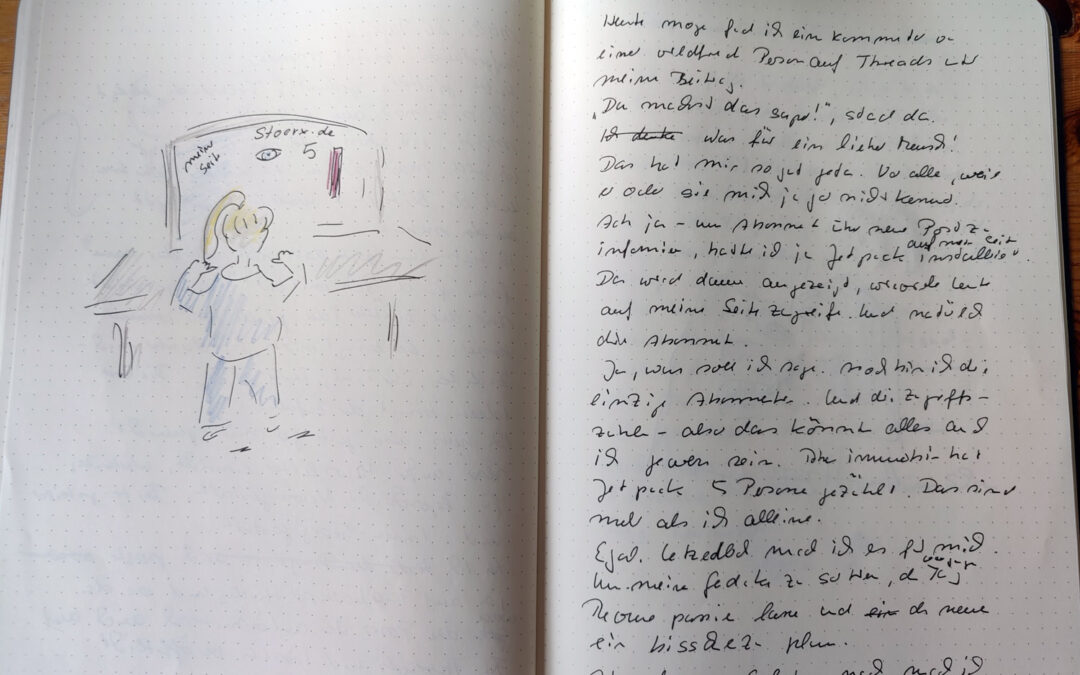 Stoerx.de
meine
Seite
5
Heute morge fad ich ein Kommentar von
einer wildfremd Person auf Threads unter
meinem Beitrag.
„Du machst das super!“, stand da.
Ich denke was für ein lieber Mensch!
Das hat mir so gut getan. Vor alle, weil
er oder sie mich ja gar nicht kennt.
Ach ja – um Abonnent über neue Posts zu
informier, hatte ich ja Jetpack auf mein Seite installiert.
Da wird dann angezeigt, wieviele Leute
auf meine Seite zugreife. Und natürlich
die Abonnent.
Ja, was soll ich sage. Noch bin ich die
einzige Abonnentin. Und die Zugriffs-
zahlen – also das könnte alles auch
ich gewesen sein. Aber immerhin hat
Jetpack 5 Persone gezählt. Das sind
mehr als ich alleine.
Egal. Letztendlich mach ich es für mich.
Um meine Gedanken zu sortier, de Tag
Revue passiere lasse und ein de neue
ein bisschen zu plane.